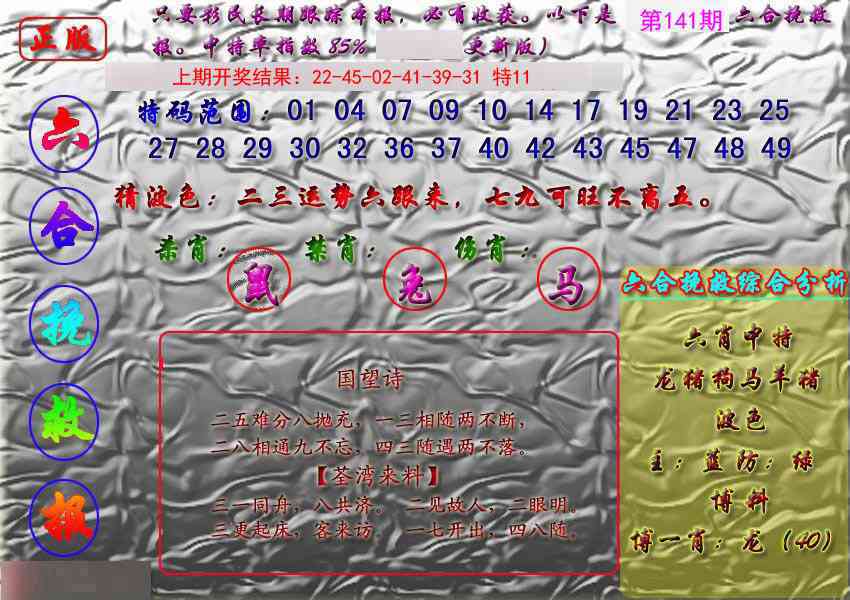 正版
只要彩民长期跟踪本报，必有收获。以下是 第141期 六合挽救
报。中特率指数85% 更新版）
上期开奖结果：22-45-02-41-39-31 特11
特码范围：01 04 07 09 10 14 17 19 21 23 25
27 28 29 30 32 36 37 40 42 43 45 47 48 49
猜波色：二三运势六跟来，七九可旺不离五。
杀肖： 鼠 禁肖： 兔 伤肖： 马
六
合
挽
救
报
国望诗
二五难分八抛充，一三相随两不断，
二八相通九不忘，四三随遇两不落。
【荃湾来料】
三一同舟，八共济。 二见故人，二眼明。
三更起床，客来访。 一七开出，四八随。
六合挽救综合分析
六肖中特
龙猪狗马羊猪
波色
主：蓝防：绿
博料
博一肖：龙（40）